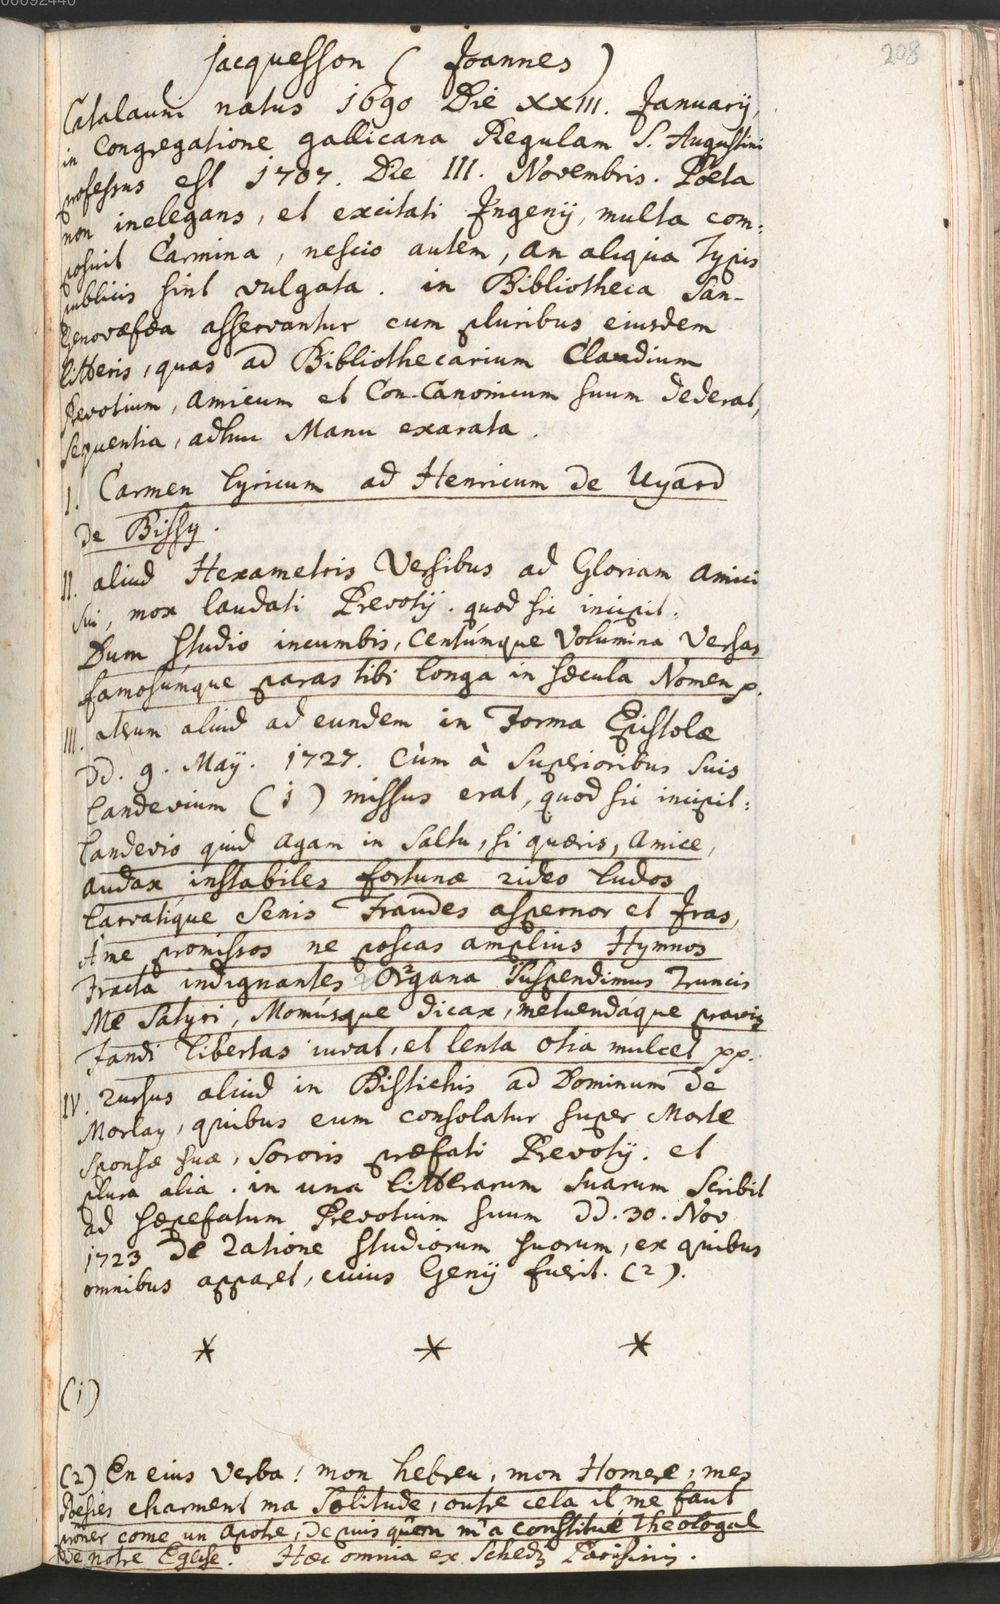 00092440
208
Jacquesson ( Joannes )
Catalauni natus 1690 Die XXIII. Januarij,
in Congregatione gallicana Regulam S. Augustini
professus est 1707. Die III. Novembris. Poëta
non inelegans, et excitati Ingenij, multa com:
posuit Carmina, nescio autem, an aliqua Typis
publicis sint vulgata. in Bibliotheca San-
Genovæfæa asservantur cum pluribus eiusdem
litteris, quas ad Bibliothecarium Claudium
Prevotium, amicum et Con-Canonicum suum dederat,
sequentia, adhuc Manu exarata.
I. Carmen lyricum ad Henricum de Uyard
de Bissy.
II. aliud Hexametris Versibus ad Gloriam amici
sui, mox laudati Prevotij. quod sic incipit.
Dum studio incumbis, centúmque Volumina Versas
famosúmque paras tibi longa in sæcula Nomen p.
III. iterum aliud ad eundem in Forma Epistolæ
dd. 9. Maÿ. 1727. Cùm à Superioribus suis
Landevium (1) missus erat, quod sic incipit:
Landevio quid agam in Saltu, si quæris, amice,
audax instabiles fortunæ rideo ludos
larvatíque Senis Fraudes aspernor et Iras,
A me promissos ne poscas amplius Hymnos
Fracta indignantes Organa Suspendimus Truncis
Me Satyri, Momúsque dicax, metuendáque pravis
Fandi libertas iuvat, et lenta otia mulcet pp.
IV. rursus aliud in Distichis ad Dominum de
Morlay, quibus eum consolatur super Morte
Sponsæ suæ, Sororis præfati Prevotij. et
plura alia. in una litterarum suarum scribit
ad sæpefatum Prevotium suum dd. 30. Nov
1723 de ratione studiorum suorum, ex quibus
omnibus apparet, cuius Genij fuerit. (2).
* * *
(1)
(2) En eius verba! mon hebreu, mon Homere, mes
Poesies charment ma Solitude, outre cela il me faut
prôner come un apotre, depuis qu'on m'a constitué Theologal
de notre Eglise. Hæc omnia ex Schedis Parisinis.